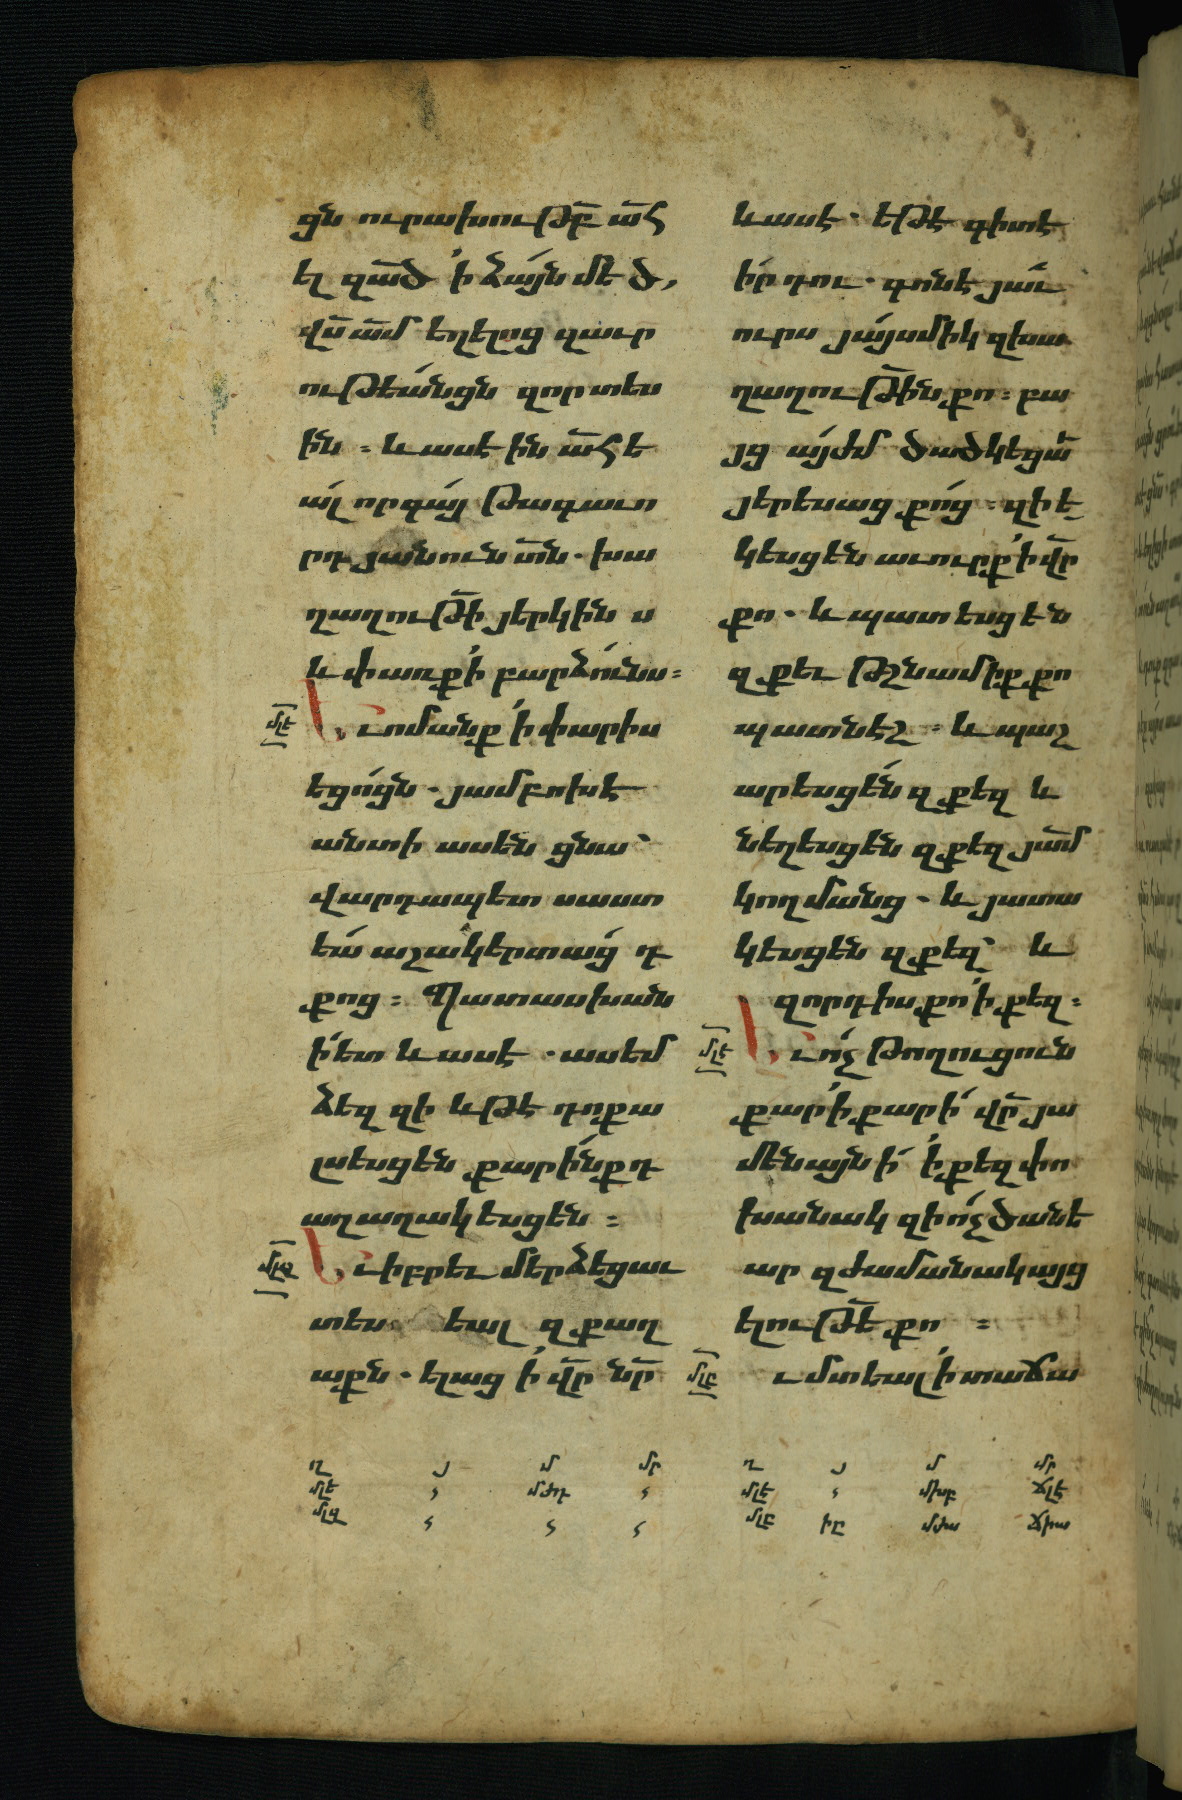 ցն ուրախութբ̄ ա̄հ
ել զա̄ծ՛ի ձայն մե ծ,
վս̄ ա̄մ եղելոց զաւր
ութեանցն զոր տես
ին ։ և ասեին ա̄հ ե
ալ որ գայ թագաւո
րդ յանուն տ̄ն · խա
ղաղութի̄ յերկին ս
և փառք՛ի բարձունս ։
մլե Ւոմանք՛ի փարիս
եցոցն · յամբոխէ
անտի ասեն ցնա՝
վարդապետ սաստ
եա աշակերտաց դ
քոց ։ Պատասխան
ի ետ և ասէ · ասեմ
ձեզ զի եթե դոքա
լսեսցեն քարինքդ
աղաղակեսցեն ։
մլզ Ւիբրեւ մերձեցաւ
տես եալ զքաղ
աքն · ելաց ի վր̄ նր̄
և ասէ · եթէ գիտէ
իր դու · գոնէ յաւ
ուրս յայսմիկ զխա
ղաղութի̄ն քո ։ բա
յց այժմ ծածկեցա̄
յերեսաց քոց ։ զի ե
կեսցեն աւուրք՛ի վր̄
քո · և պատեսցեն
զքեւ թշնամիք քո
պատնեշ ։ և պաշ
արեսցեն զքեզ և
նեղեսցեն զքեզ յա̄մ
կողմանց · և յատա
կեսցեն զքեզ՝ և
զորդիս քո՛ի քեզ ։
մլէ Ւոչ թողուցուն
քար՛ի քարի վր̄ յա
մենայնի՛ի քեզ փո
խանակ զի ոչ ծանե
ար զժամանակ այց
ելութե̄ քո ։
մլը Ւմտեալ՛ի տաճա
ղ յ մ մր ղ յ մ մր
մլե ՙ մժդ ՙ մլէ ՙ մխբ ճլէ
մլզ ՙ ՙ ՙ մլը իը մժա ճիա